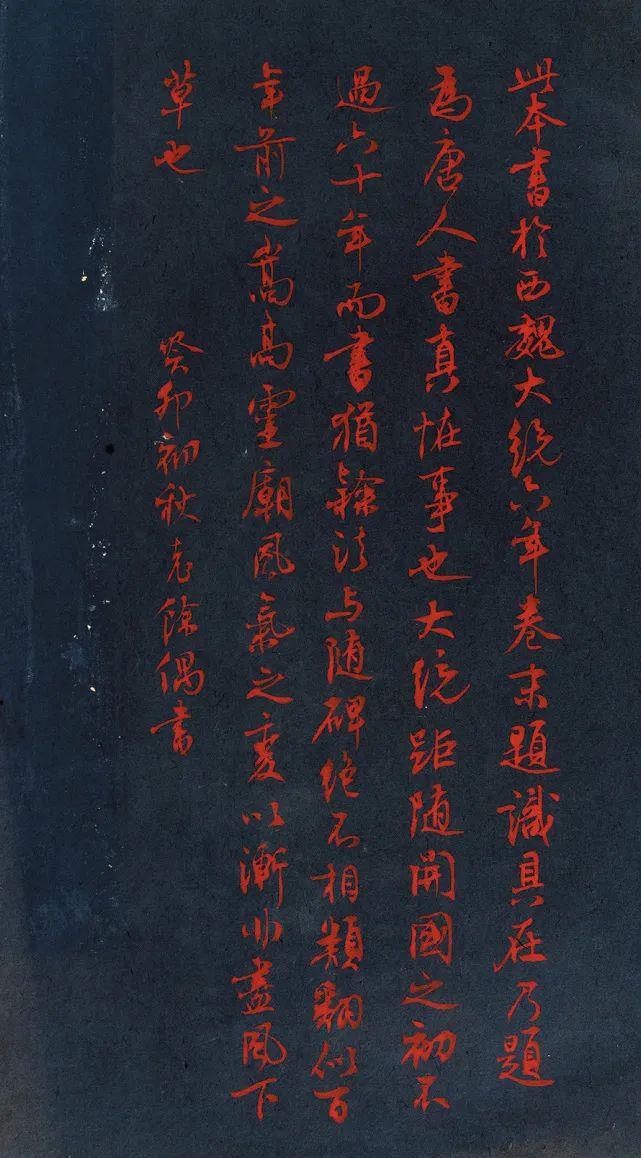 此本書於西魏大統六年卷末題識具在乃題
爲唐人書真恠事也大統距隨開國之初不
過六十年而書猶隸法与随碑绝不相類翻似百
年前之嵩高靈廟風氣之変以漸非盡風下
草也
癸卯初秋老餘偶書